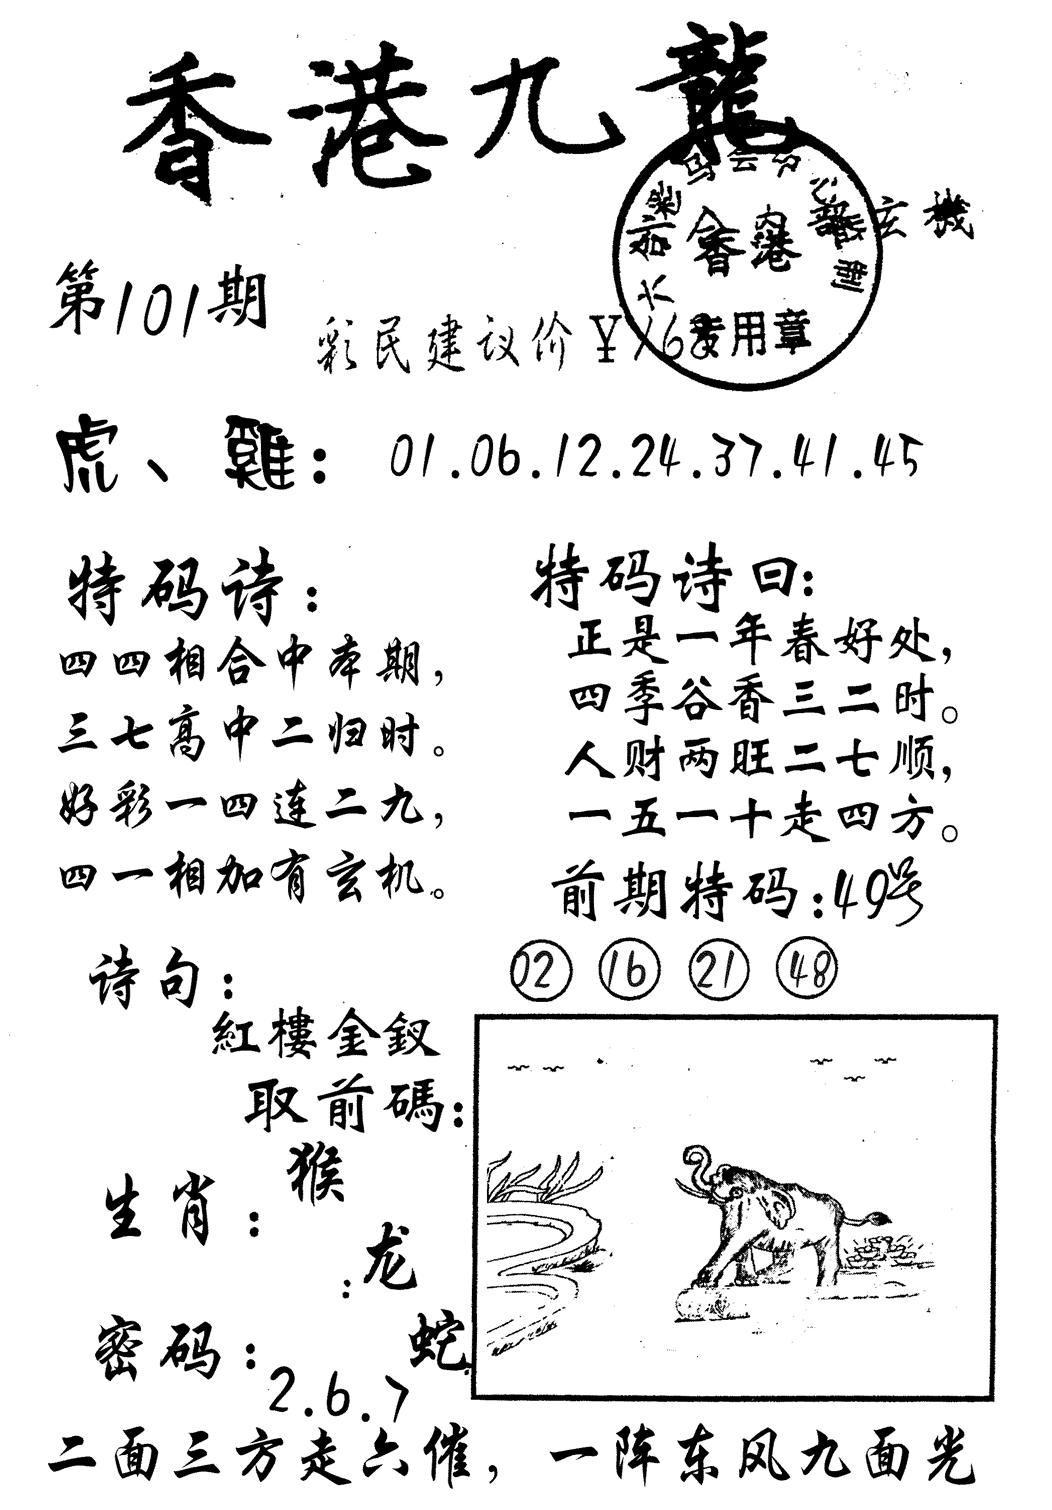 香港九龍
玄機
香港
专用章
第101期
彩民建议价¥168
虎、雞：01.06.12.24.37.41.45
特码诗：
四四相合中本期，
三七高中二归时。
好彩一四连二九，
四一相加有玄机。
特码诗曰：
正是一年春好处，
四季谷香三二时。
人财两旺二七顺，
一五一十走四方。
前期特码：49号
02 16 21 48
诗句：
紅樓金釵
取前碼：
生肖：猴
：龙
蛇
密码：2.6.7
二面三方走六催，一阵东风九面光